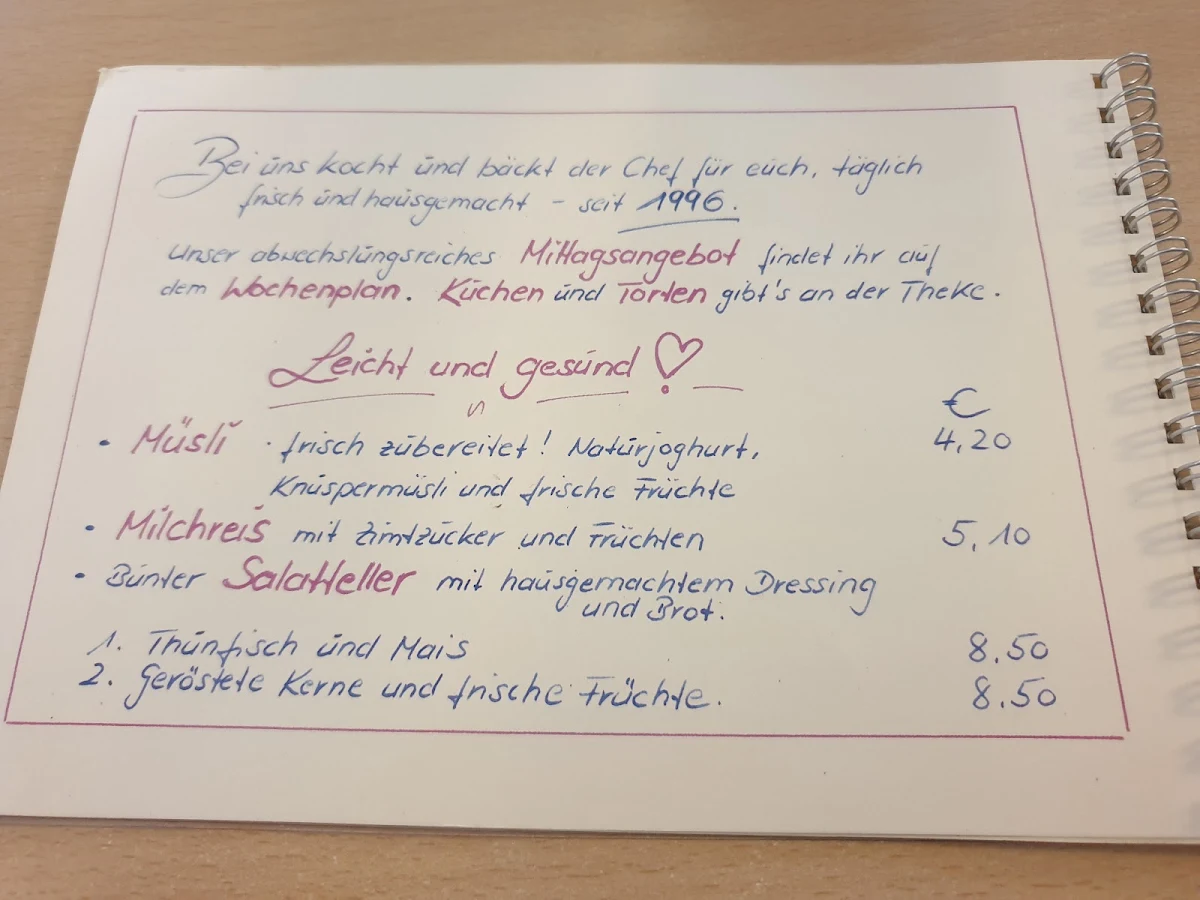 Bei uns kocht und bäckt der Chef für euch, täglich
frisch und hausgemacht - seit 1996.
Unser abwechslungsreiches Mittagsangebot findet ihr auf
dem Wochenplan. Kuchen und Torten gibt's an der Theke.
Leicht und gesund ♡
€
• Müsli · frisch zubereitet! Naturjoghurt, 4,20
Knuspermüsli und frische Früchte
• Milchreis mit Zimtzucker und Früchten 5,10
• Bunter Salatteller mit hausgemachtem Dressing
und Brot.
1. Thunfisch und Mais 8.50
2. Geröstete Kerne und frische Früchte. 8.50